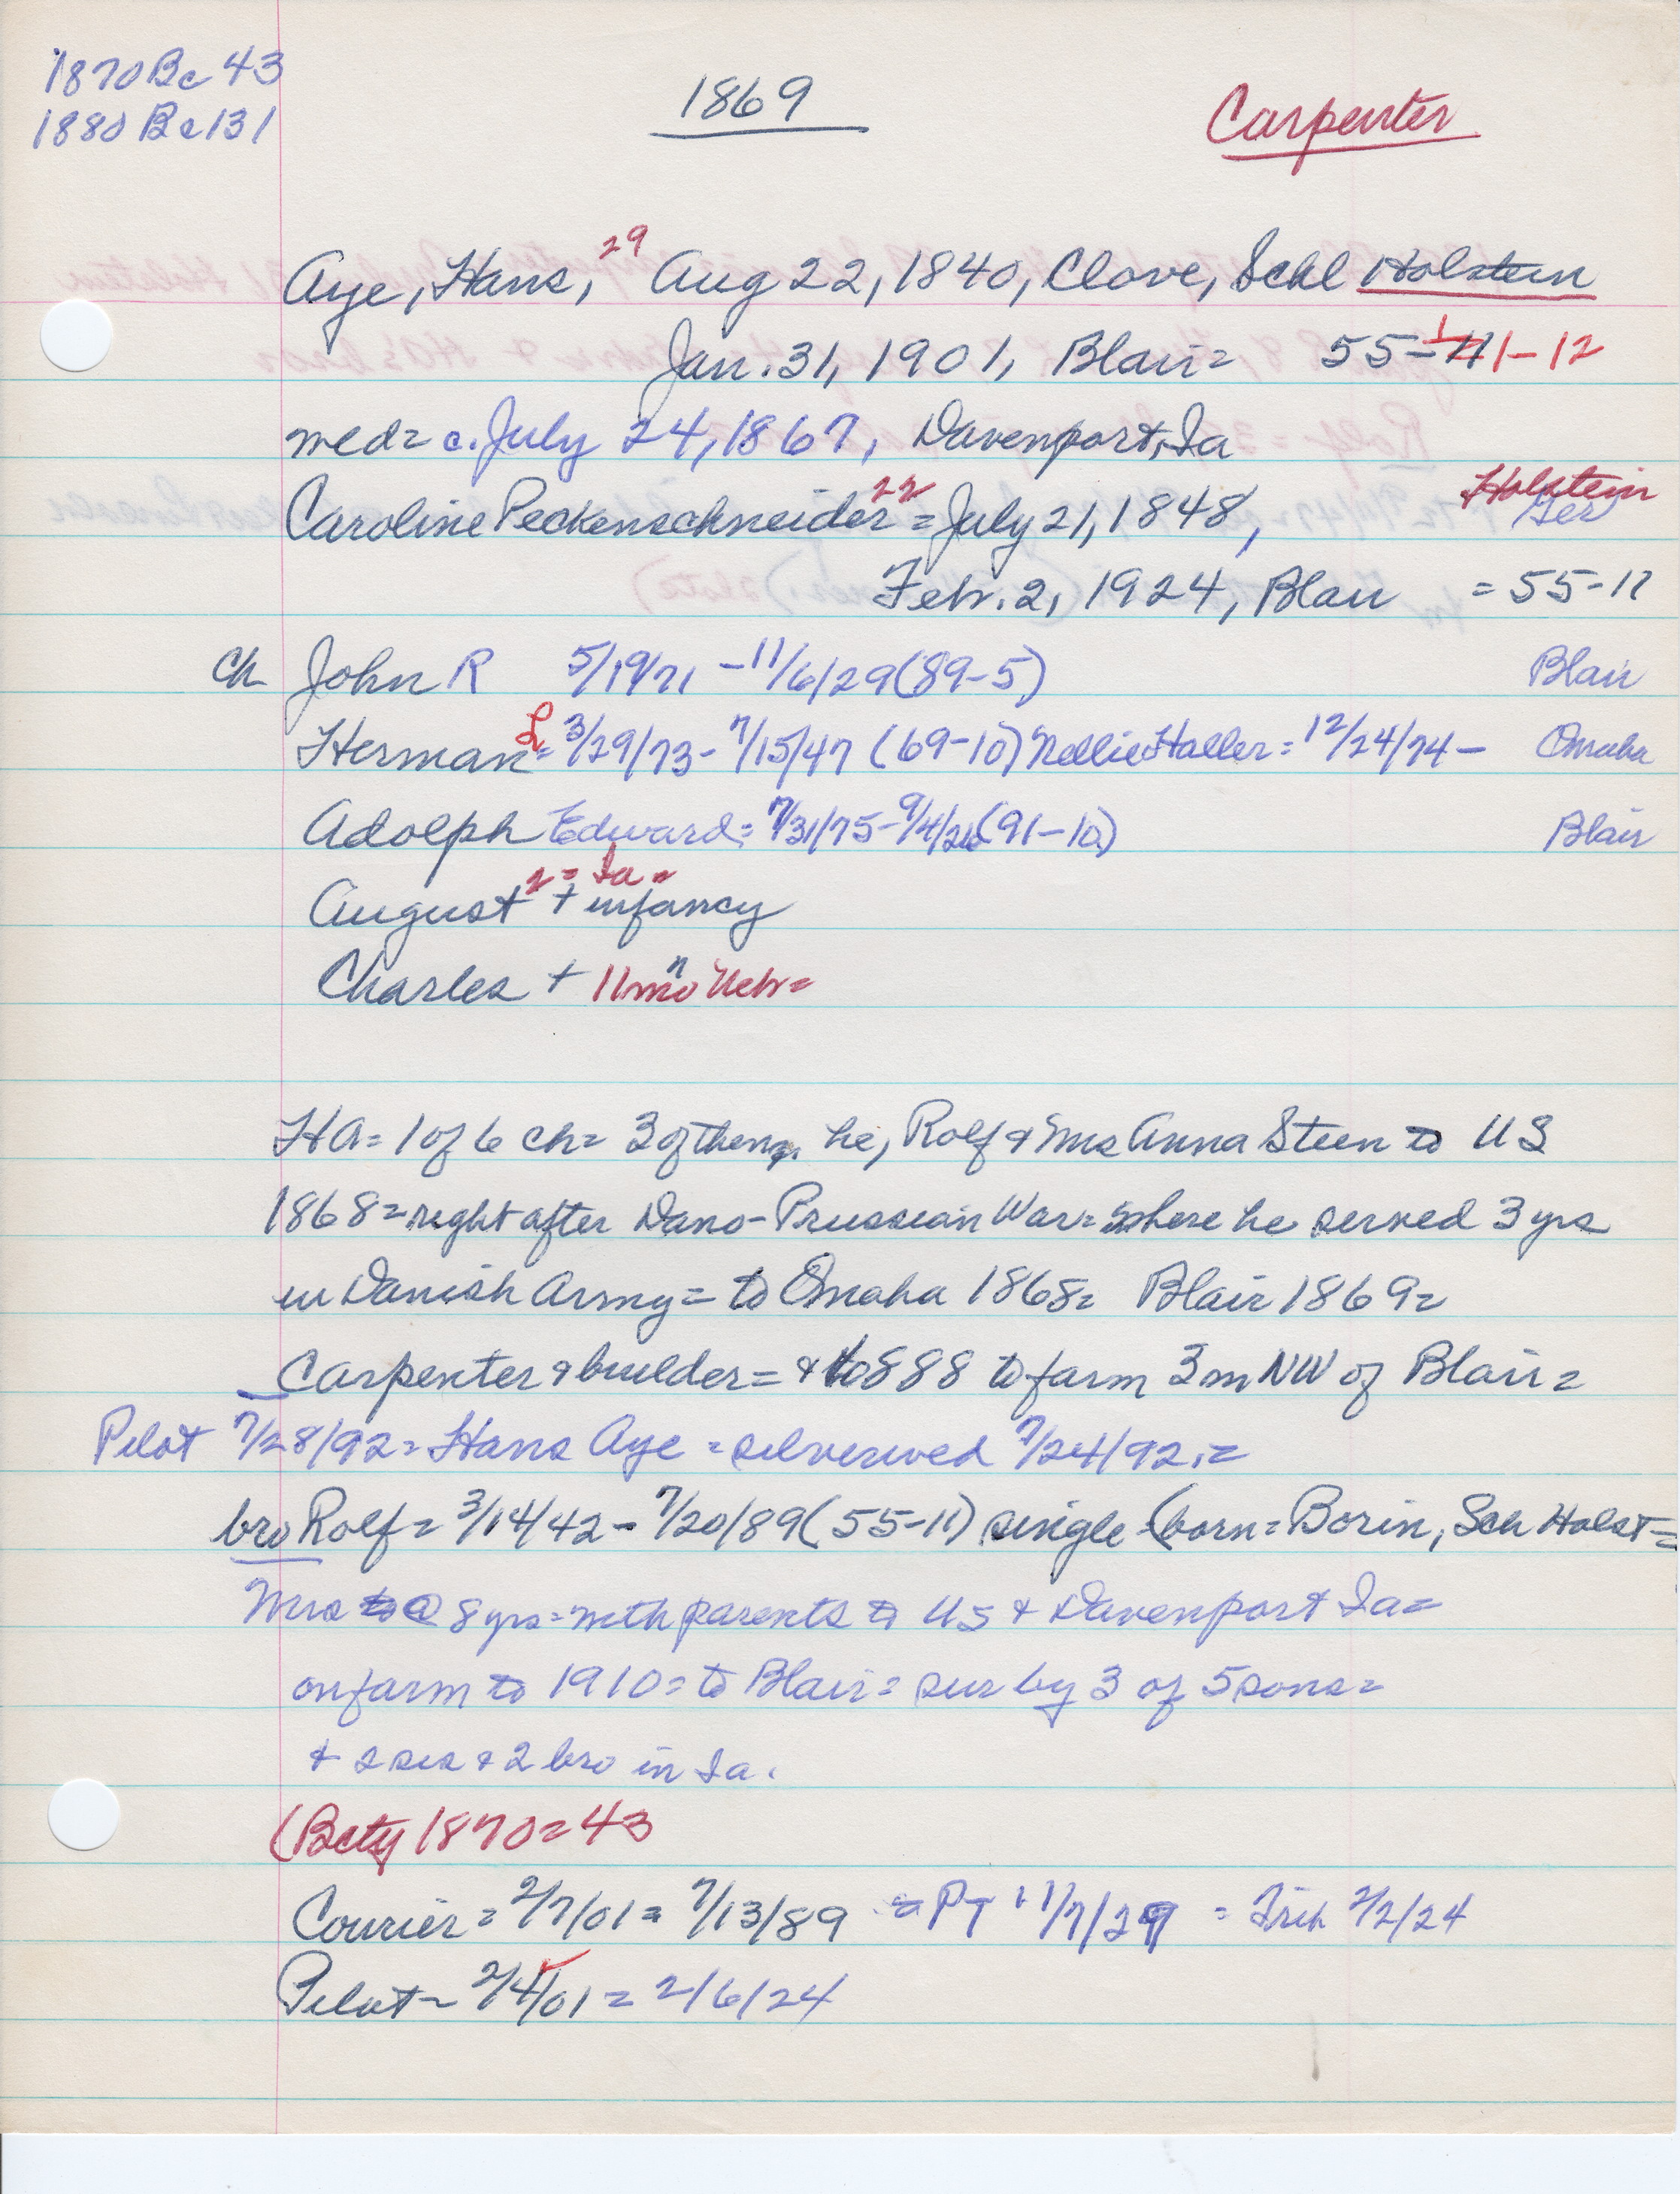 1870 Bc 43
1880 Bc 131
1869
Carpenter
29
Aye, Hans, Aug 22, 1840, Clove, Schl Holstein
Jan. 31, 1901, Blair = 55-11-12
med = c. July 24, 1867, Davenport, Ia
22 Holstein
Caroline Peckenschneider = July 21, 1848, Ger
Feb. 2, 1924, Blair = 55-11
Ch John R 5/19/71 - 11/6/29 (89-5) Blair
Herman L = 3/29/73 - 7/15/47 (69-10) Nellie Haller = 12/24/74 - Omaha
Adolph Edward = 7/31/75 - 9/4/26 (91-10) Blair
2 = Ia =
August + infancy
Charles + 11 mo Neb =
HA = 1 of 6 ch = 3 of them, he, Rolf & Mrs Anna Steen to US
1868 = right after Dano-Prussian War = where he served 3 yrs
in Danish Army = to Omaha 1868 = Blair 1869 =
Carpenter & builder = & to 888 to farm 3 m NW of Blair =
Pilot 7/28/92 = Hans Aye = silverwed 7/24/92. =
bro Rolf = 3/14/42 - 7/20/89 (55-11) single (born = Borin, Sch Holst =
Mrs @ 8 yrs = with parents to US & Davenport Ia =
on farm to 1910 = to Blair = sur by 3 of 5 sons =
+ 2 sis & 2 bro in Ia.
(Bcty 1870 = 43
Courier = 2/7/01 = 7/13/89 = PT 11/7/29 = Trib 2/2/24
Pilot - 2/4/01 = 2/6/24